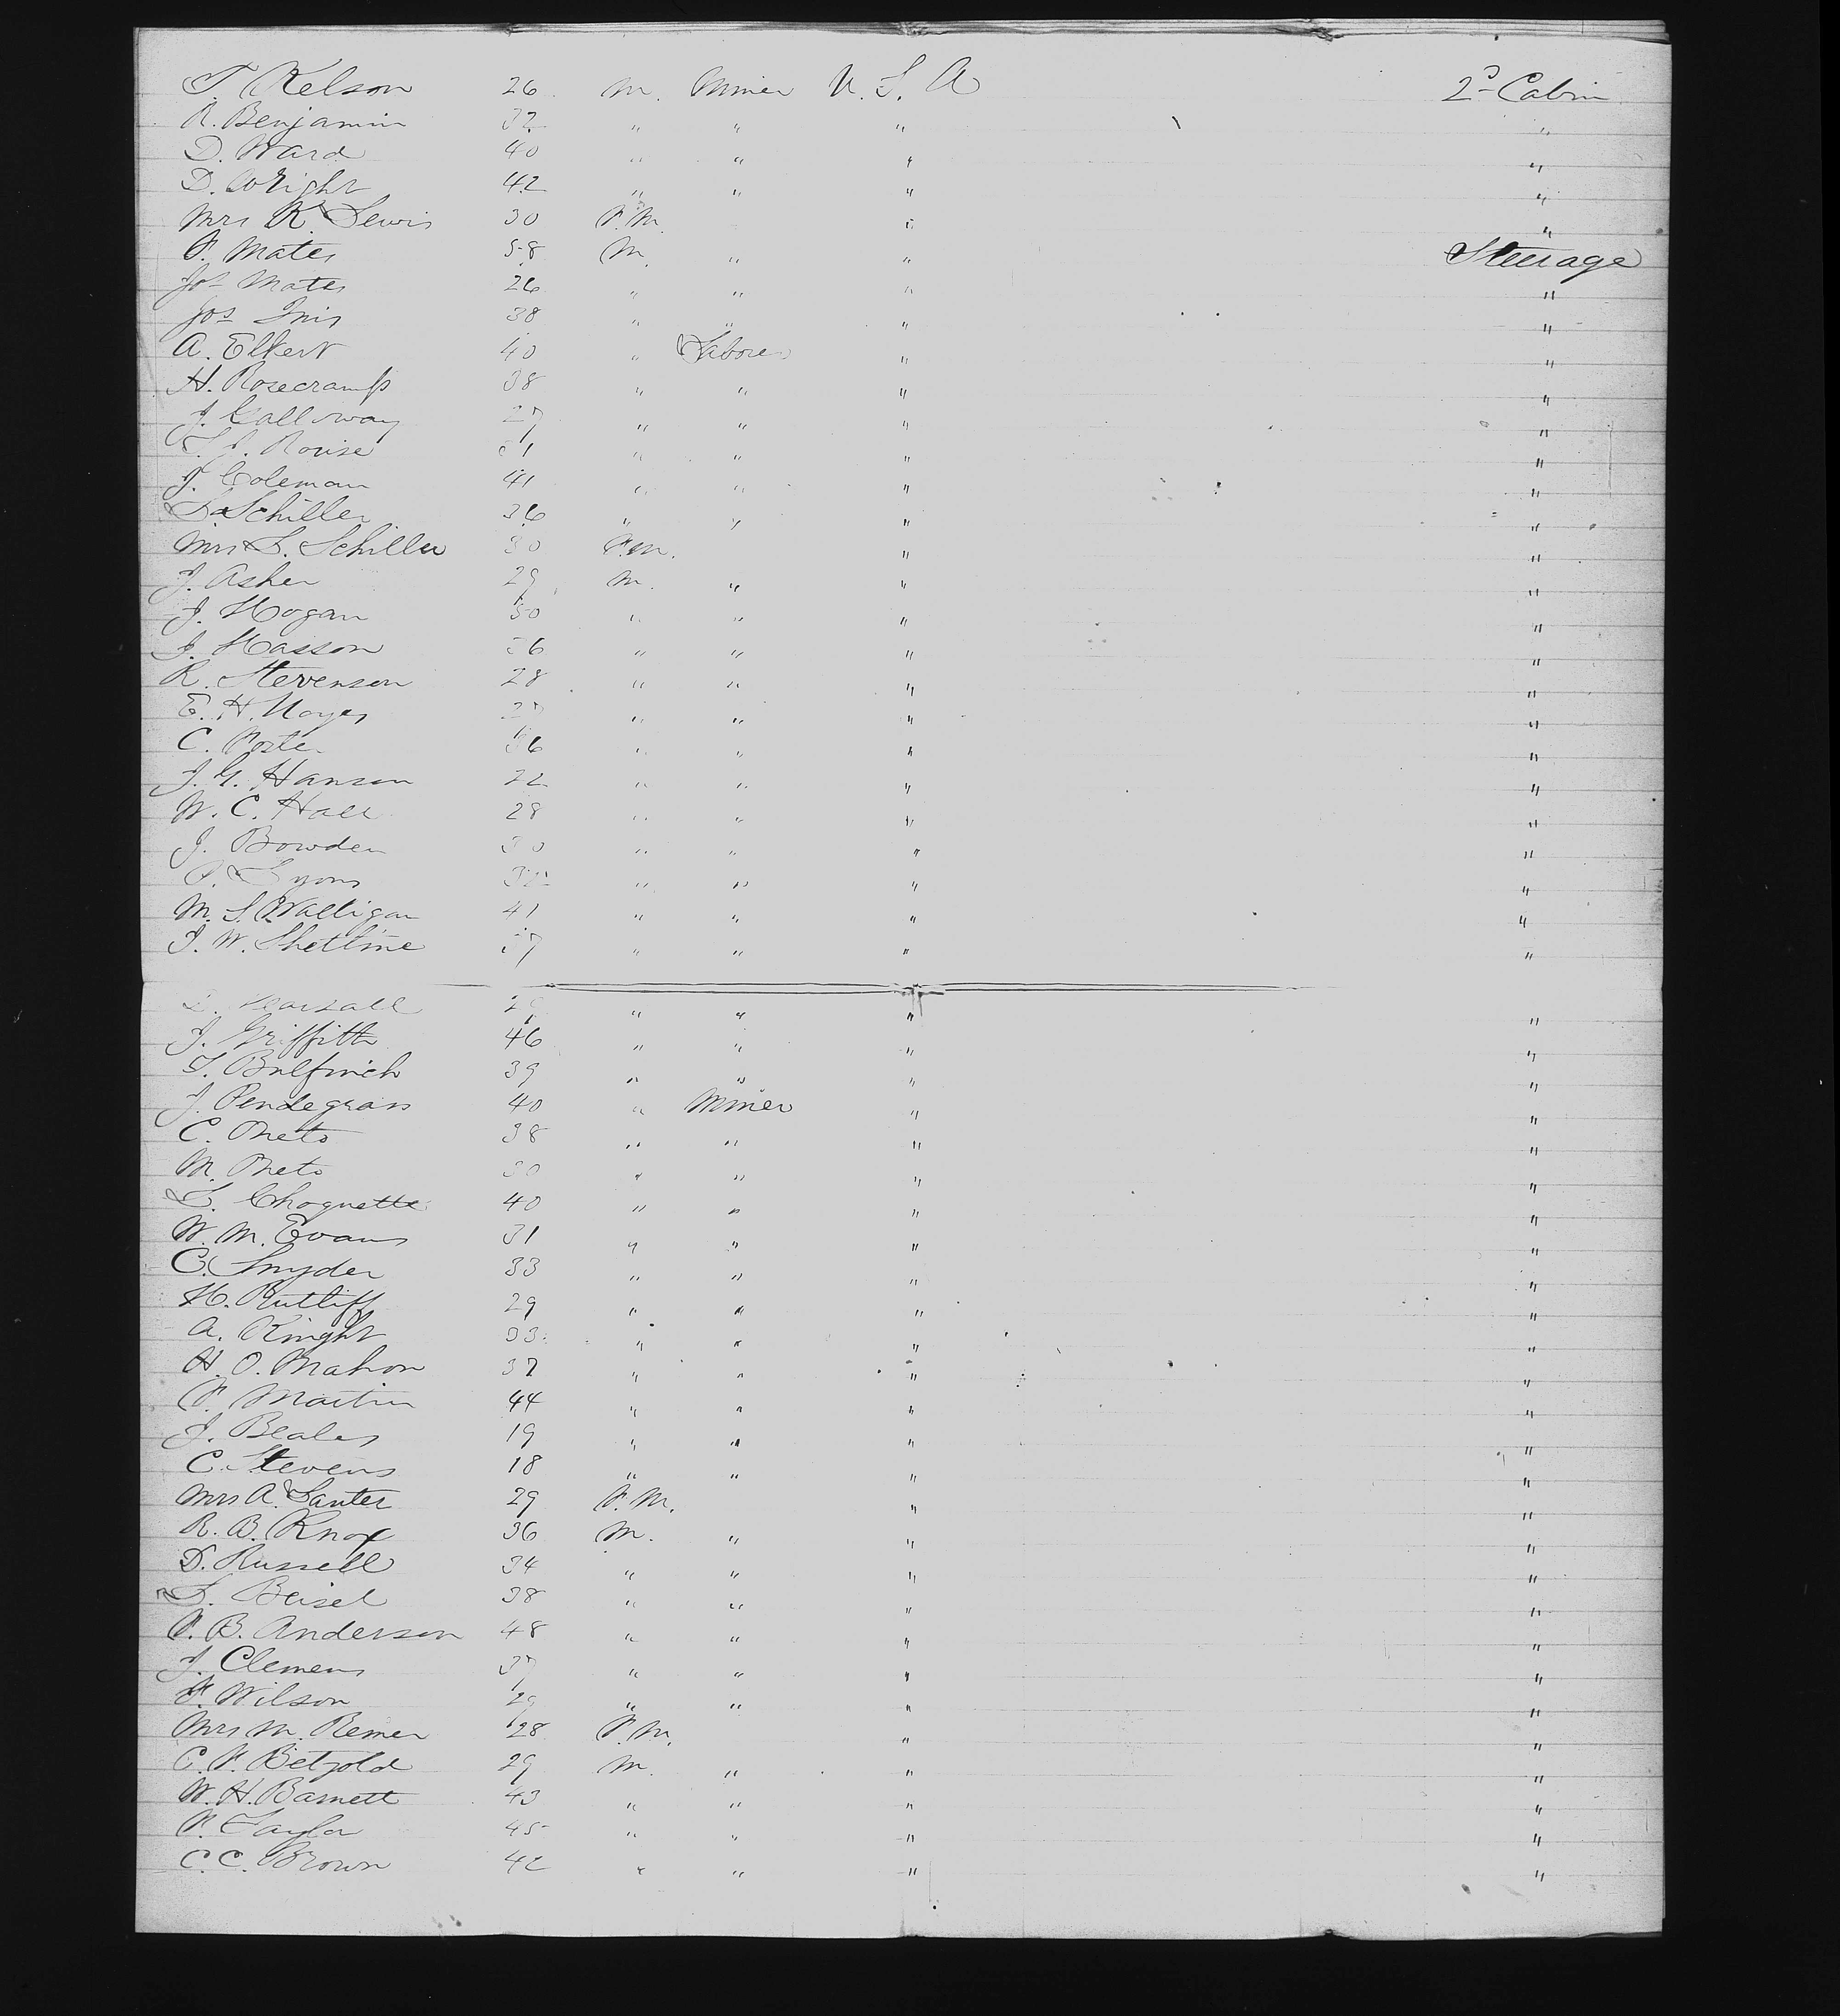 T. Kelson 26 M. Miner U. S. A 2d Cabin
R. Benjamin 32 " " " "
D. Ward 40 " " " "
D. Wright 42 " " " "
Mrs K. Lewis 30 F.M. " "
F. Mates 58 M. " " Steerage
Jos Mates 26 " " " "
Jos 38 " " " "
A. Elkert 40 " Laborer " "
H. Rosecramp 38 " " " "
J. Galloway 27 " " " "
Rouse 31 " " " "
J. Coleman 41 " " " "
L. Schiller 36 " " " "
Mrs L. Schiller 30 F.M. " "
J. Asher 29 M. " " "
J. Hogan 50 " " " "
J. Hasson 36 " " " "
R. Stevenson 28 " " " "
E. H. Noyes " " " "
C. Porter 36 " " " "
J. G. Hanson 22 " " " "
W. C. Hall 28 " " " "
J. Bowden 30 " " " "
P. Lyons " " " "
M. S. Walligan 41 " " " "
J. W. Shetline " " " "
29 " " " "
J. Griffith 46 " " " "
T. Bulfinch 39 " " " "
J. Pendegrass 40 " Miner " "
C. Meto 38 " " " "
M. Meto 30 " " " "
L. Choquette 40 " " " "
W. M. Evans 31 " " " "
C. Snyder 33 " " " "
H. Rutliff 29 " " " "
A. Knight 33 " " " "
H. O. Mahon 37 " " " "
F. Martin 44 " " " "
J. Beales 19 " " " "
C. Stevens 18 " " " "
Mrs A. Santer 29 F.M. " "
R. B. Knox 36 M. " " "
D. Russell 34 " " " "
L. Beisel 38 " " " "
F. B. Anderson 48 " " " "
J. Clemens 37 " " " "
F. Wilson 29 " " " "
Mrs M. Remer 28 F.M. " "
C. F. Betzold 29 M. " " "
W. H. Barnett 43 " " " "
F. Taylor 45 " " " "
C. C. Brown 42 " " " "